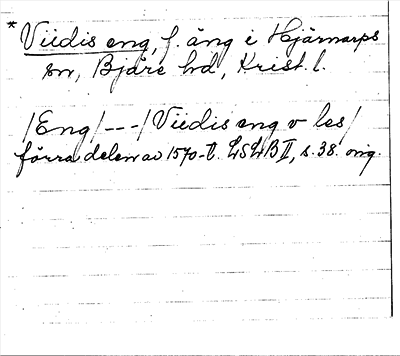 * Viidis eng, f. äng i Hjärnarps
sn, Bjäre hd, Krist. l.
/Eng/---/Viidis eng v les/
förra delen av 1570-t. LSLB II, s. 38. orig.